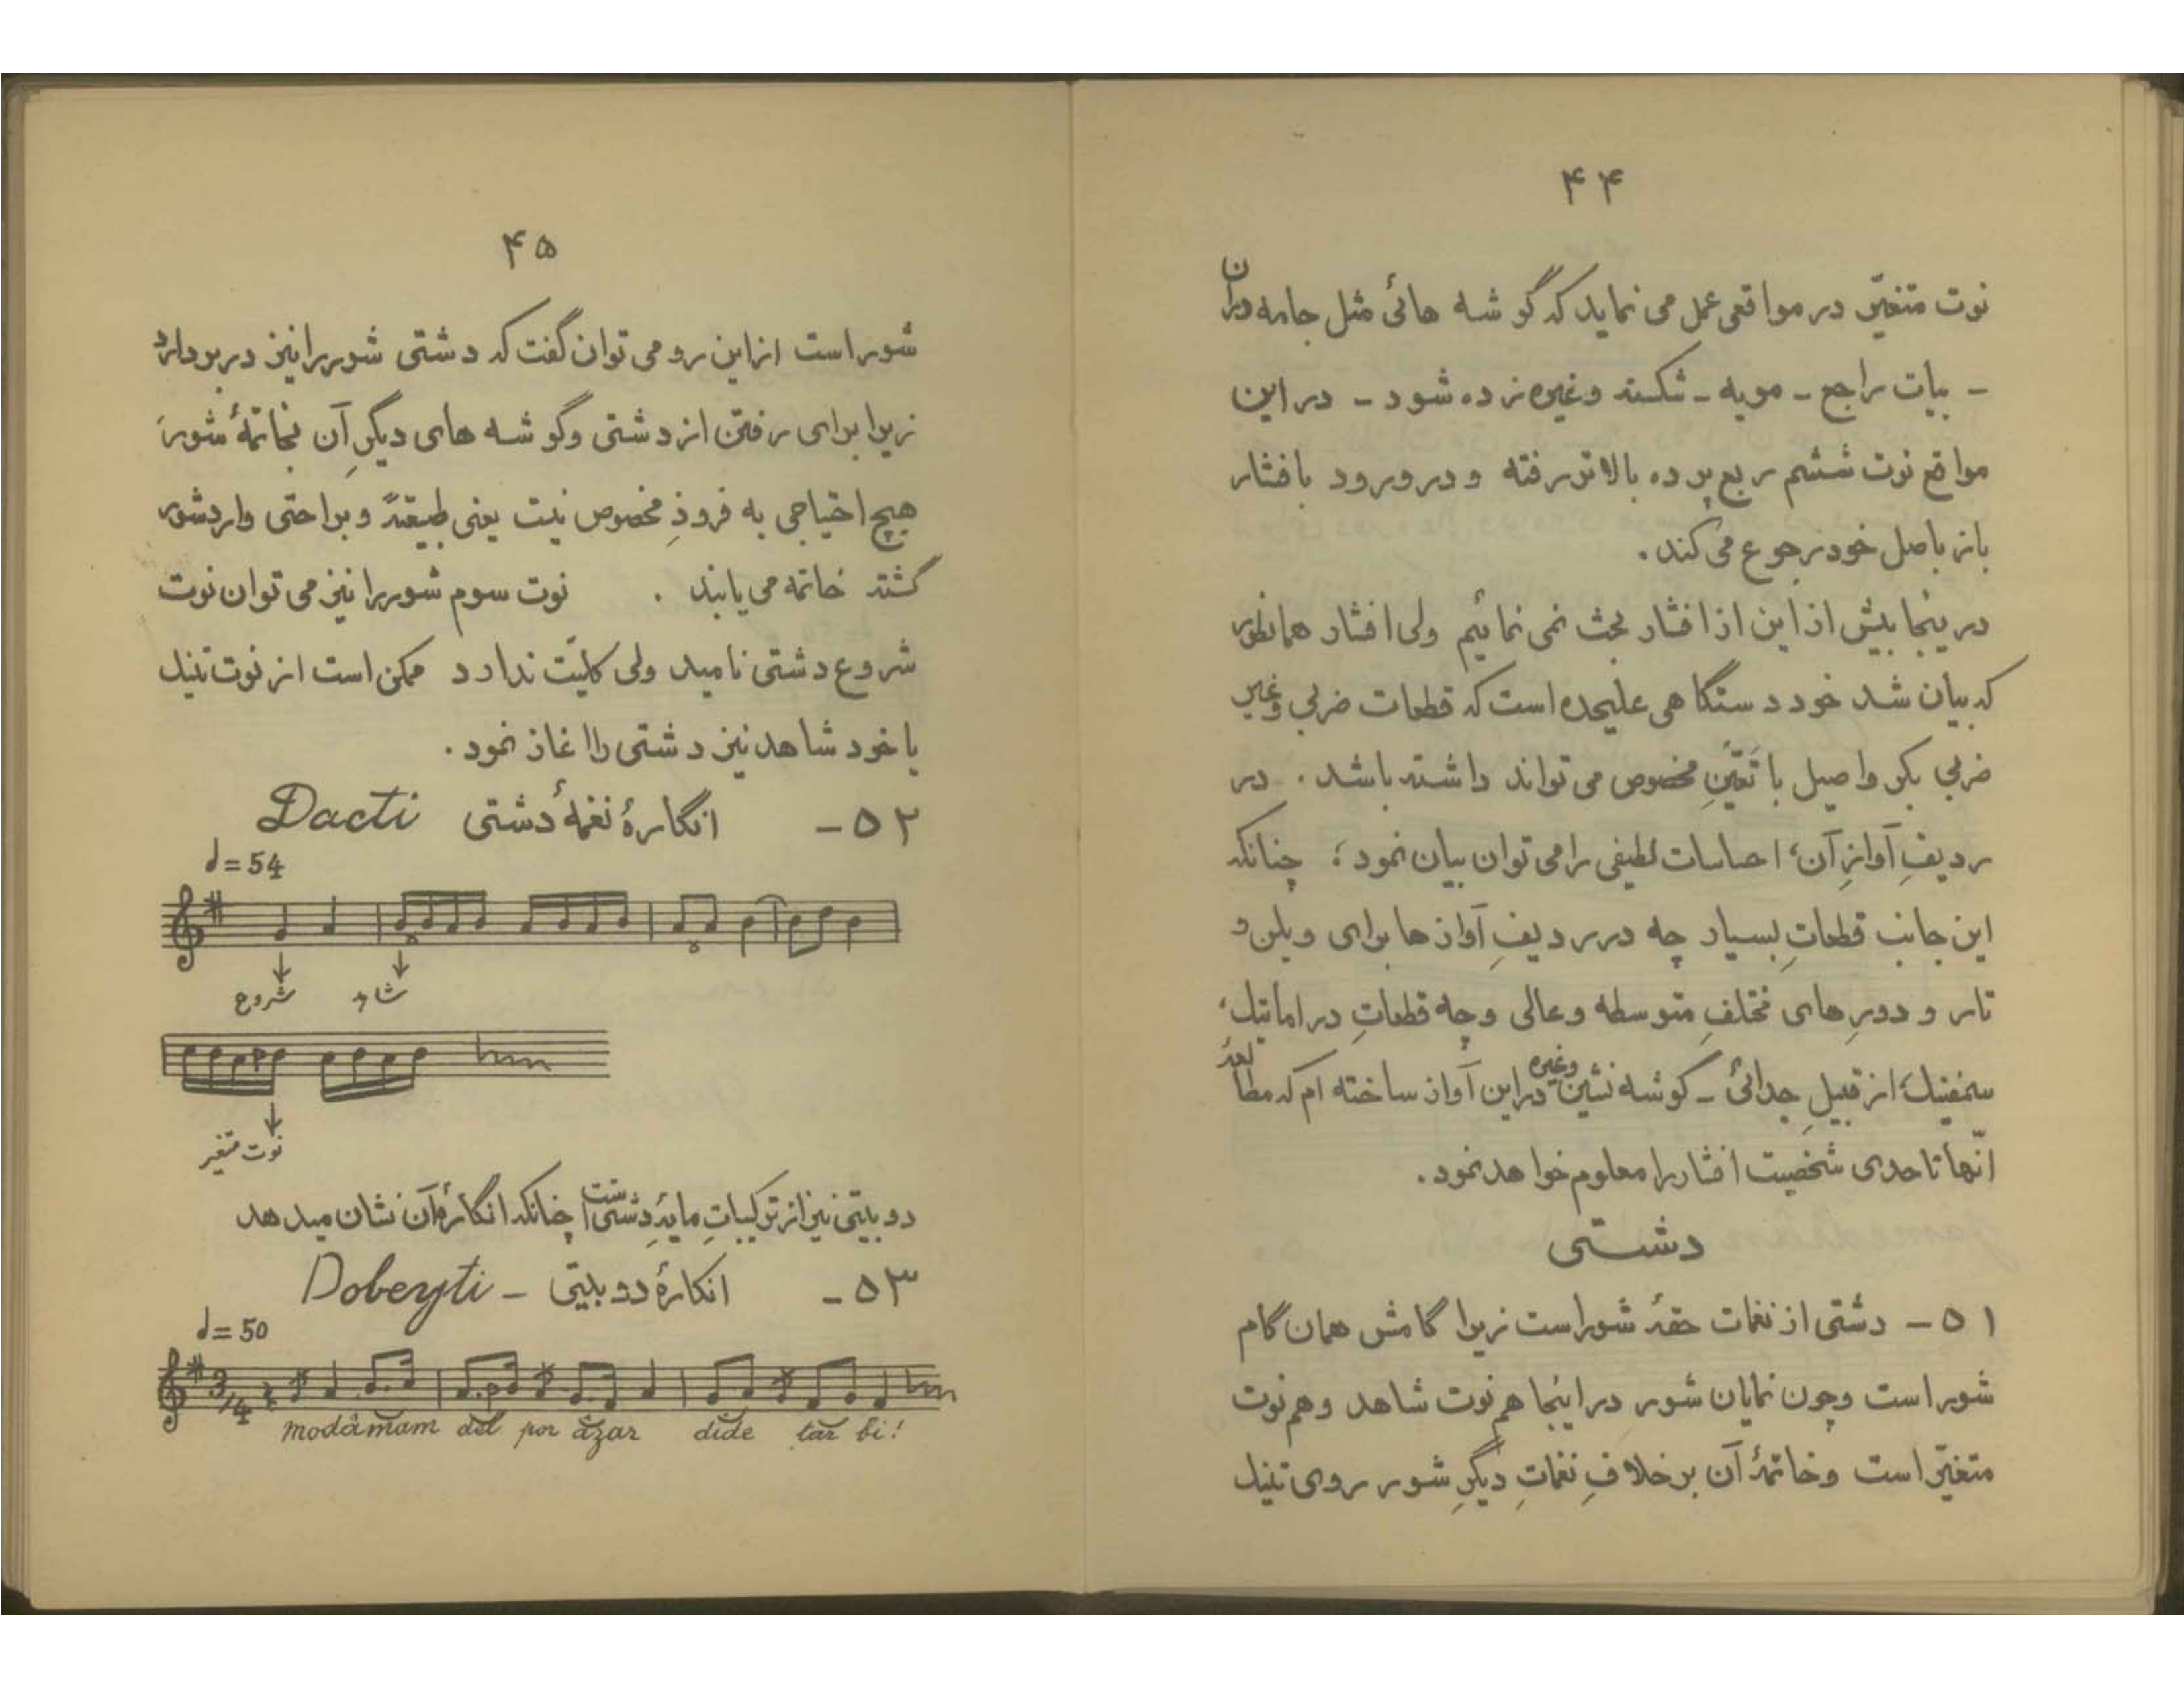 ۴۴
نوت متغیّر در مواقعی عمل می نماید که گوشه هائی مثل جامه دران
- بیات راجع - مویه - شکسته وغیره زده شود - در این
مواقع نوت ششم ربع پرده بالاتر رفته و در ورود بافشار
باز باصل خود رجوع می کند.
در ینجا بیش از این از افشار بحث نمی نمائیم ولی افشار همانطور
که بیان شد خود دستگاهی علیحده است که قطعات ضربی وغیر
ضربی بکر واصیل با تعیّنِ مخصوص می تواند داشته باشد. در
ردیفِ آوازِ آن، احساسات لطیفی را می توان بیان نمود؛ چنانکه
این جانب قطعاتِ بسیار چه در ردیفِ آواز ها برای ویلن و
تار و دورِ های مختلفِ متوسطه و عالی و چه قطعاتِ دراماتیک،
سمفنیک، از قبیلِ جدائی - گوشه نشین وغیره در این آواز ساخته ام که مطالعهٔ
آنها تا حدی شخصیت افشار را معلوم خواهد نمود.
دشتی
۵۱ - دشتی از نغمات حقهٔ شور است زیرا گامش همان گام
شور است وچون نمایان شور در اینجا هم نوت شاهد وهم نوت
متغیّر است وخاتمهٔ آن بر خلافِ نغماتِ دیگرِ شور روی تنیک
۴۵
شور است از این رو می توان گفت که دشتی شور را نیز در بردارد
زیرا برای رفتن از دشتی وگوشه های دیگرِ آن بخاتمهٔ شور،
هیچ احتیاجی به فرودِ مخصوص نیست یعنی طبیعةً و براحتی وارد شور
گشته خاتمه می یابند . نوت سوم شور را نیز می توان نوت
شروع دشتی نامید ولی کلیّت ندارد ممکن است از نوت تنیک
یا خود شاهد نیز دشتی را اغاز نمود.
۵۲ - انگارهٔ نغمهٔ دشتی Dacti
= 54
شروع شاهد
نوت متغیر
دو بیتی نیز از ترکیباتِ مایهٔ دشتی است چنانکه انگارهٔ آن نشان میدهد
۵۳ - انگارهٔ دو بیتی - Dobeyti
= 50
3/4
modâmam del por âzar dide tar bi!